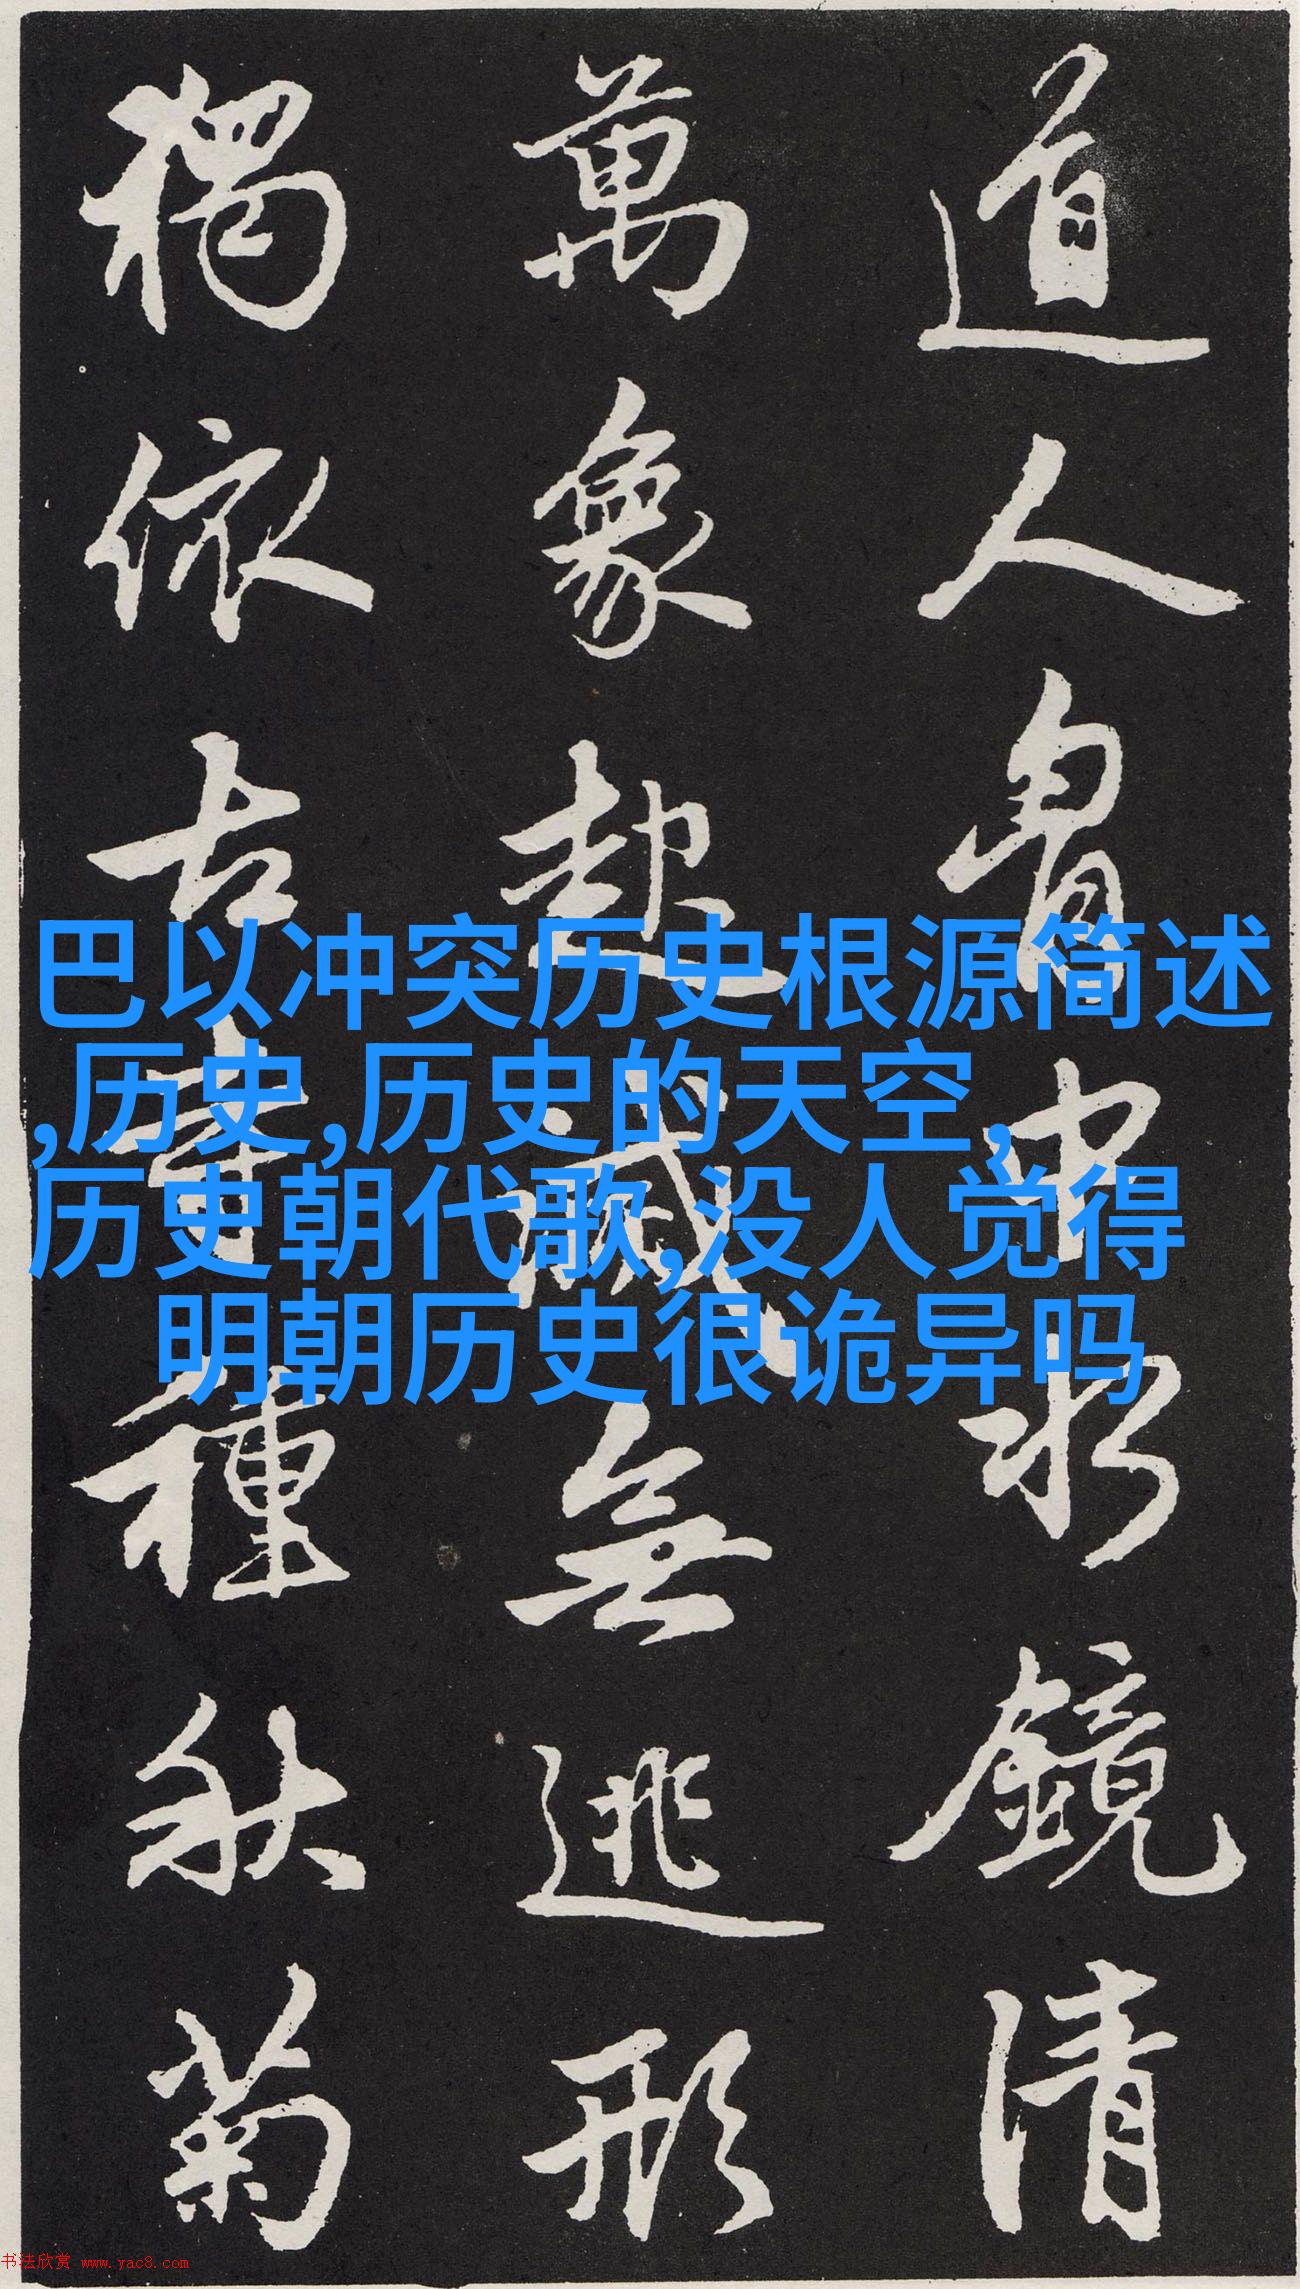 道人胷中水鏡清
萬象起滅無逃形
獨依古寺種秋菊
巴以冲突历史根源简述
,历史,历史的天空,
历史朝代歌,没人觉得
明朝历史很诡异吗
书法欣赏 www.yac8.com